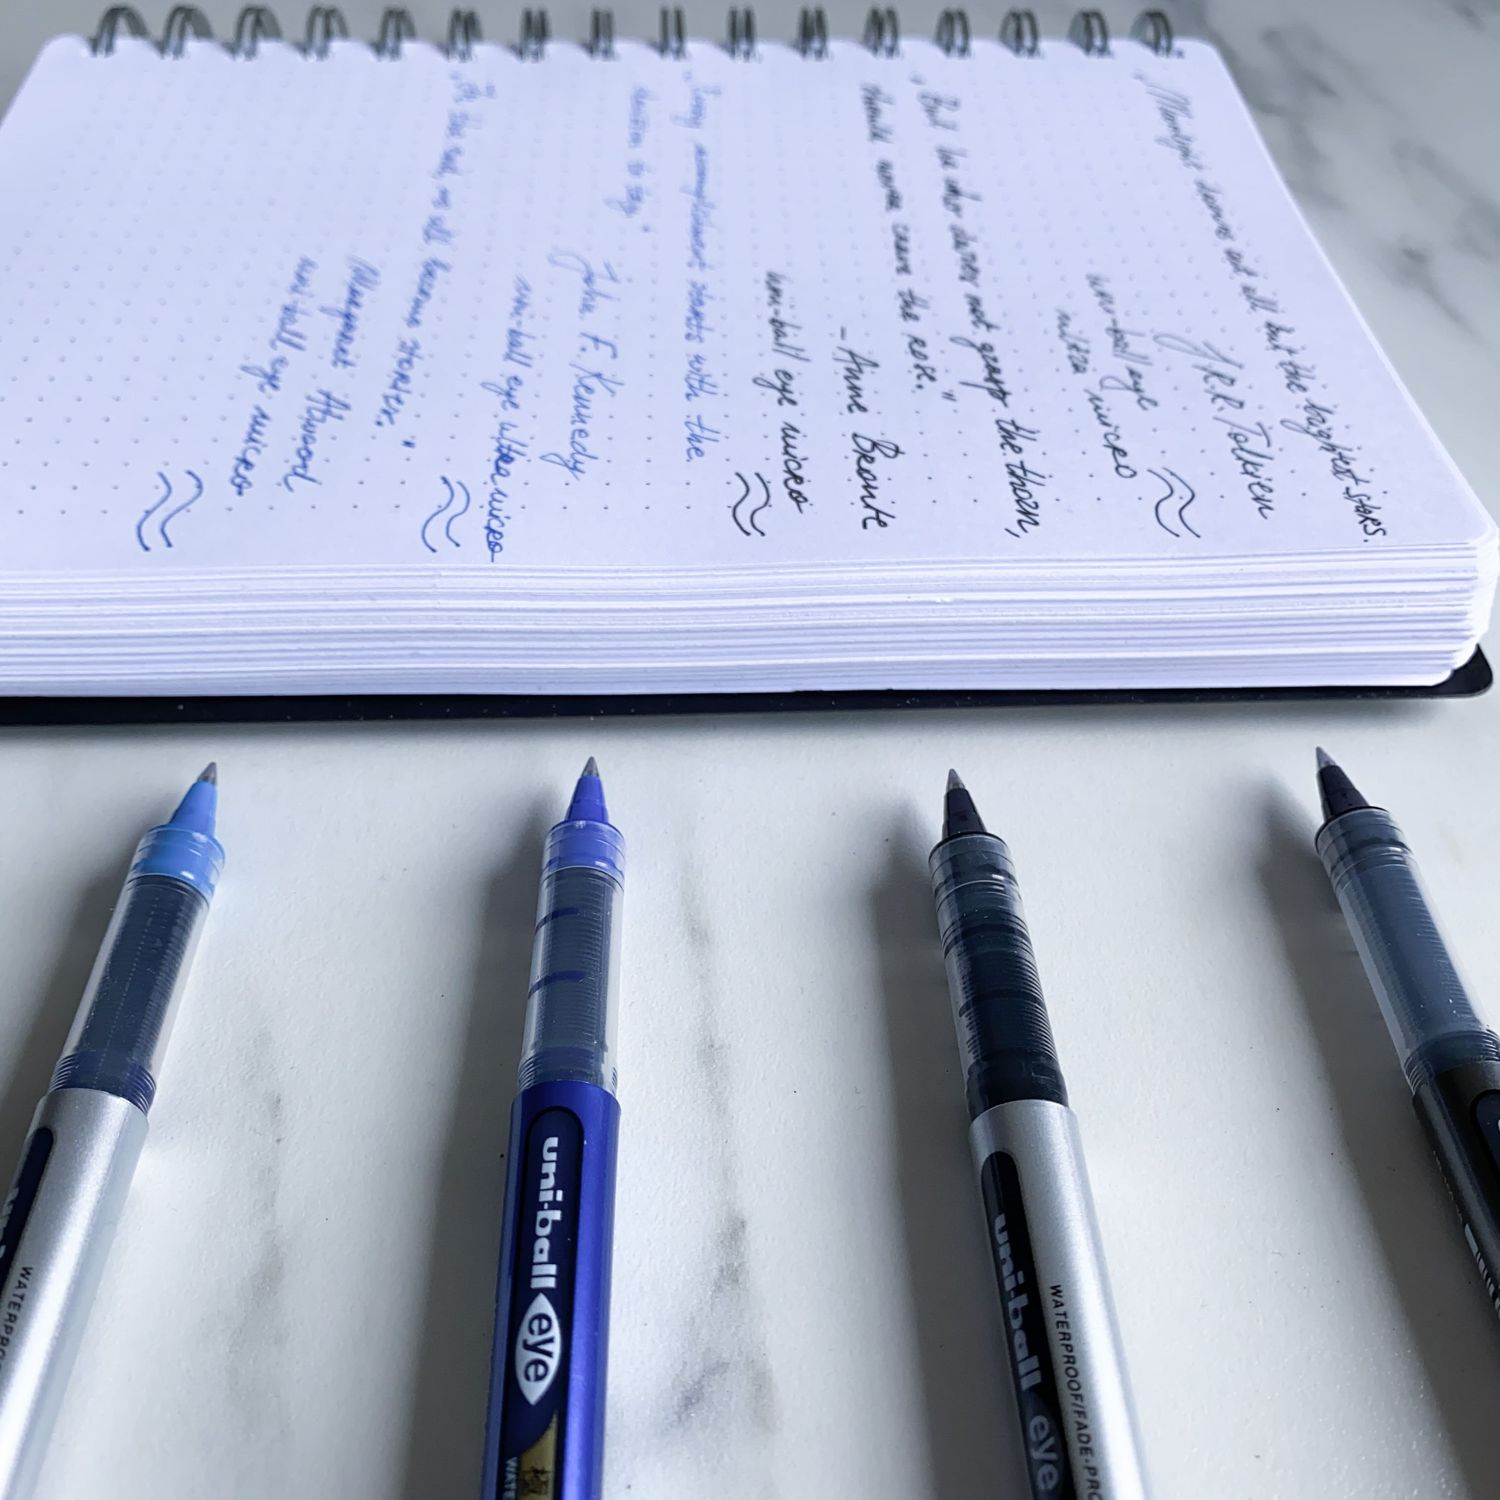 "Moonlight drowns out all but the brightest stars.
J.R.R. Tolkien
uni-ball eye micro
"But he who dares not grasp the thorn,
should never crave the rose."
- Anne Bronte
uni-ball eye micro
"Every accomplishment starts with the
decision to try."
John F. Kennedy
uni-ball eye ultra micro
"In the end, we all become stories."
Margaret Atwood
uni-ball eye micro
WATERPROO
uni-ball eye
WATE
uni-ball eye
WATERPROOF/FADE-PRO